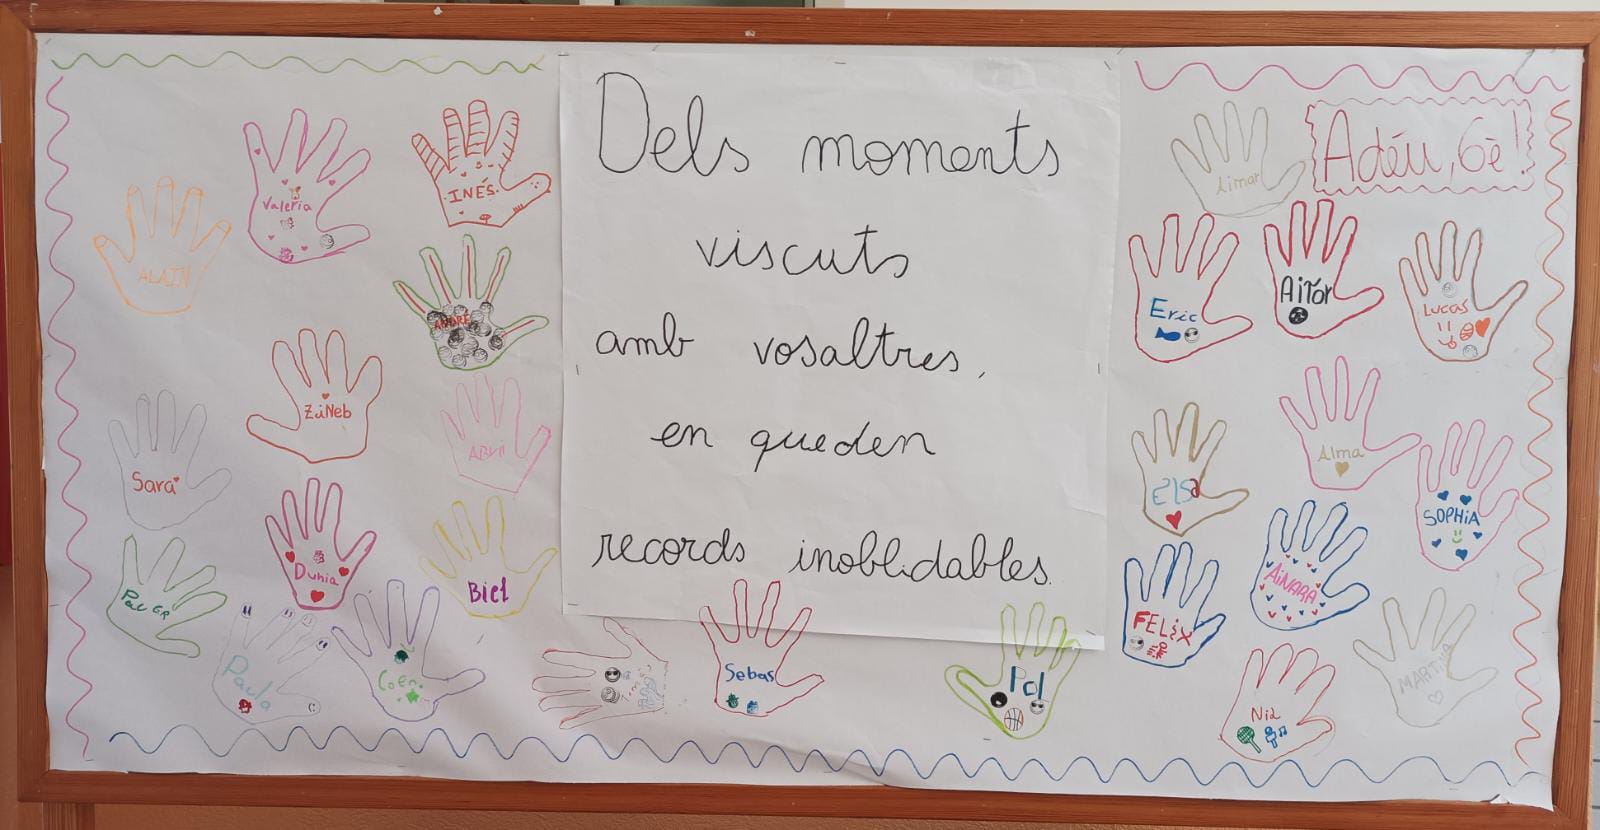 Dels moments
viscuts
amb vosaltres,
en queden
records inoblidables.
Adéu, 6è!
ALAIN
Valeria
INÉS
ANDRE
ZiNeb
ABRil
Sara
Dunia
Biel
Pau GR
Paula
Sebas
Pol
Aimar
Eric
AiTor
Lucas
Alma
ElSa
SOPHiA
AiNARA
FELiX
MARTiNA
Nia